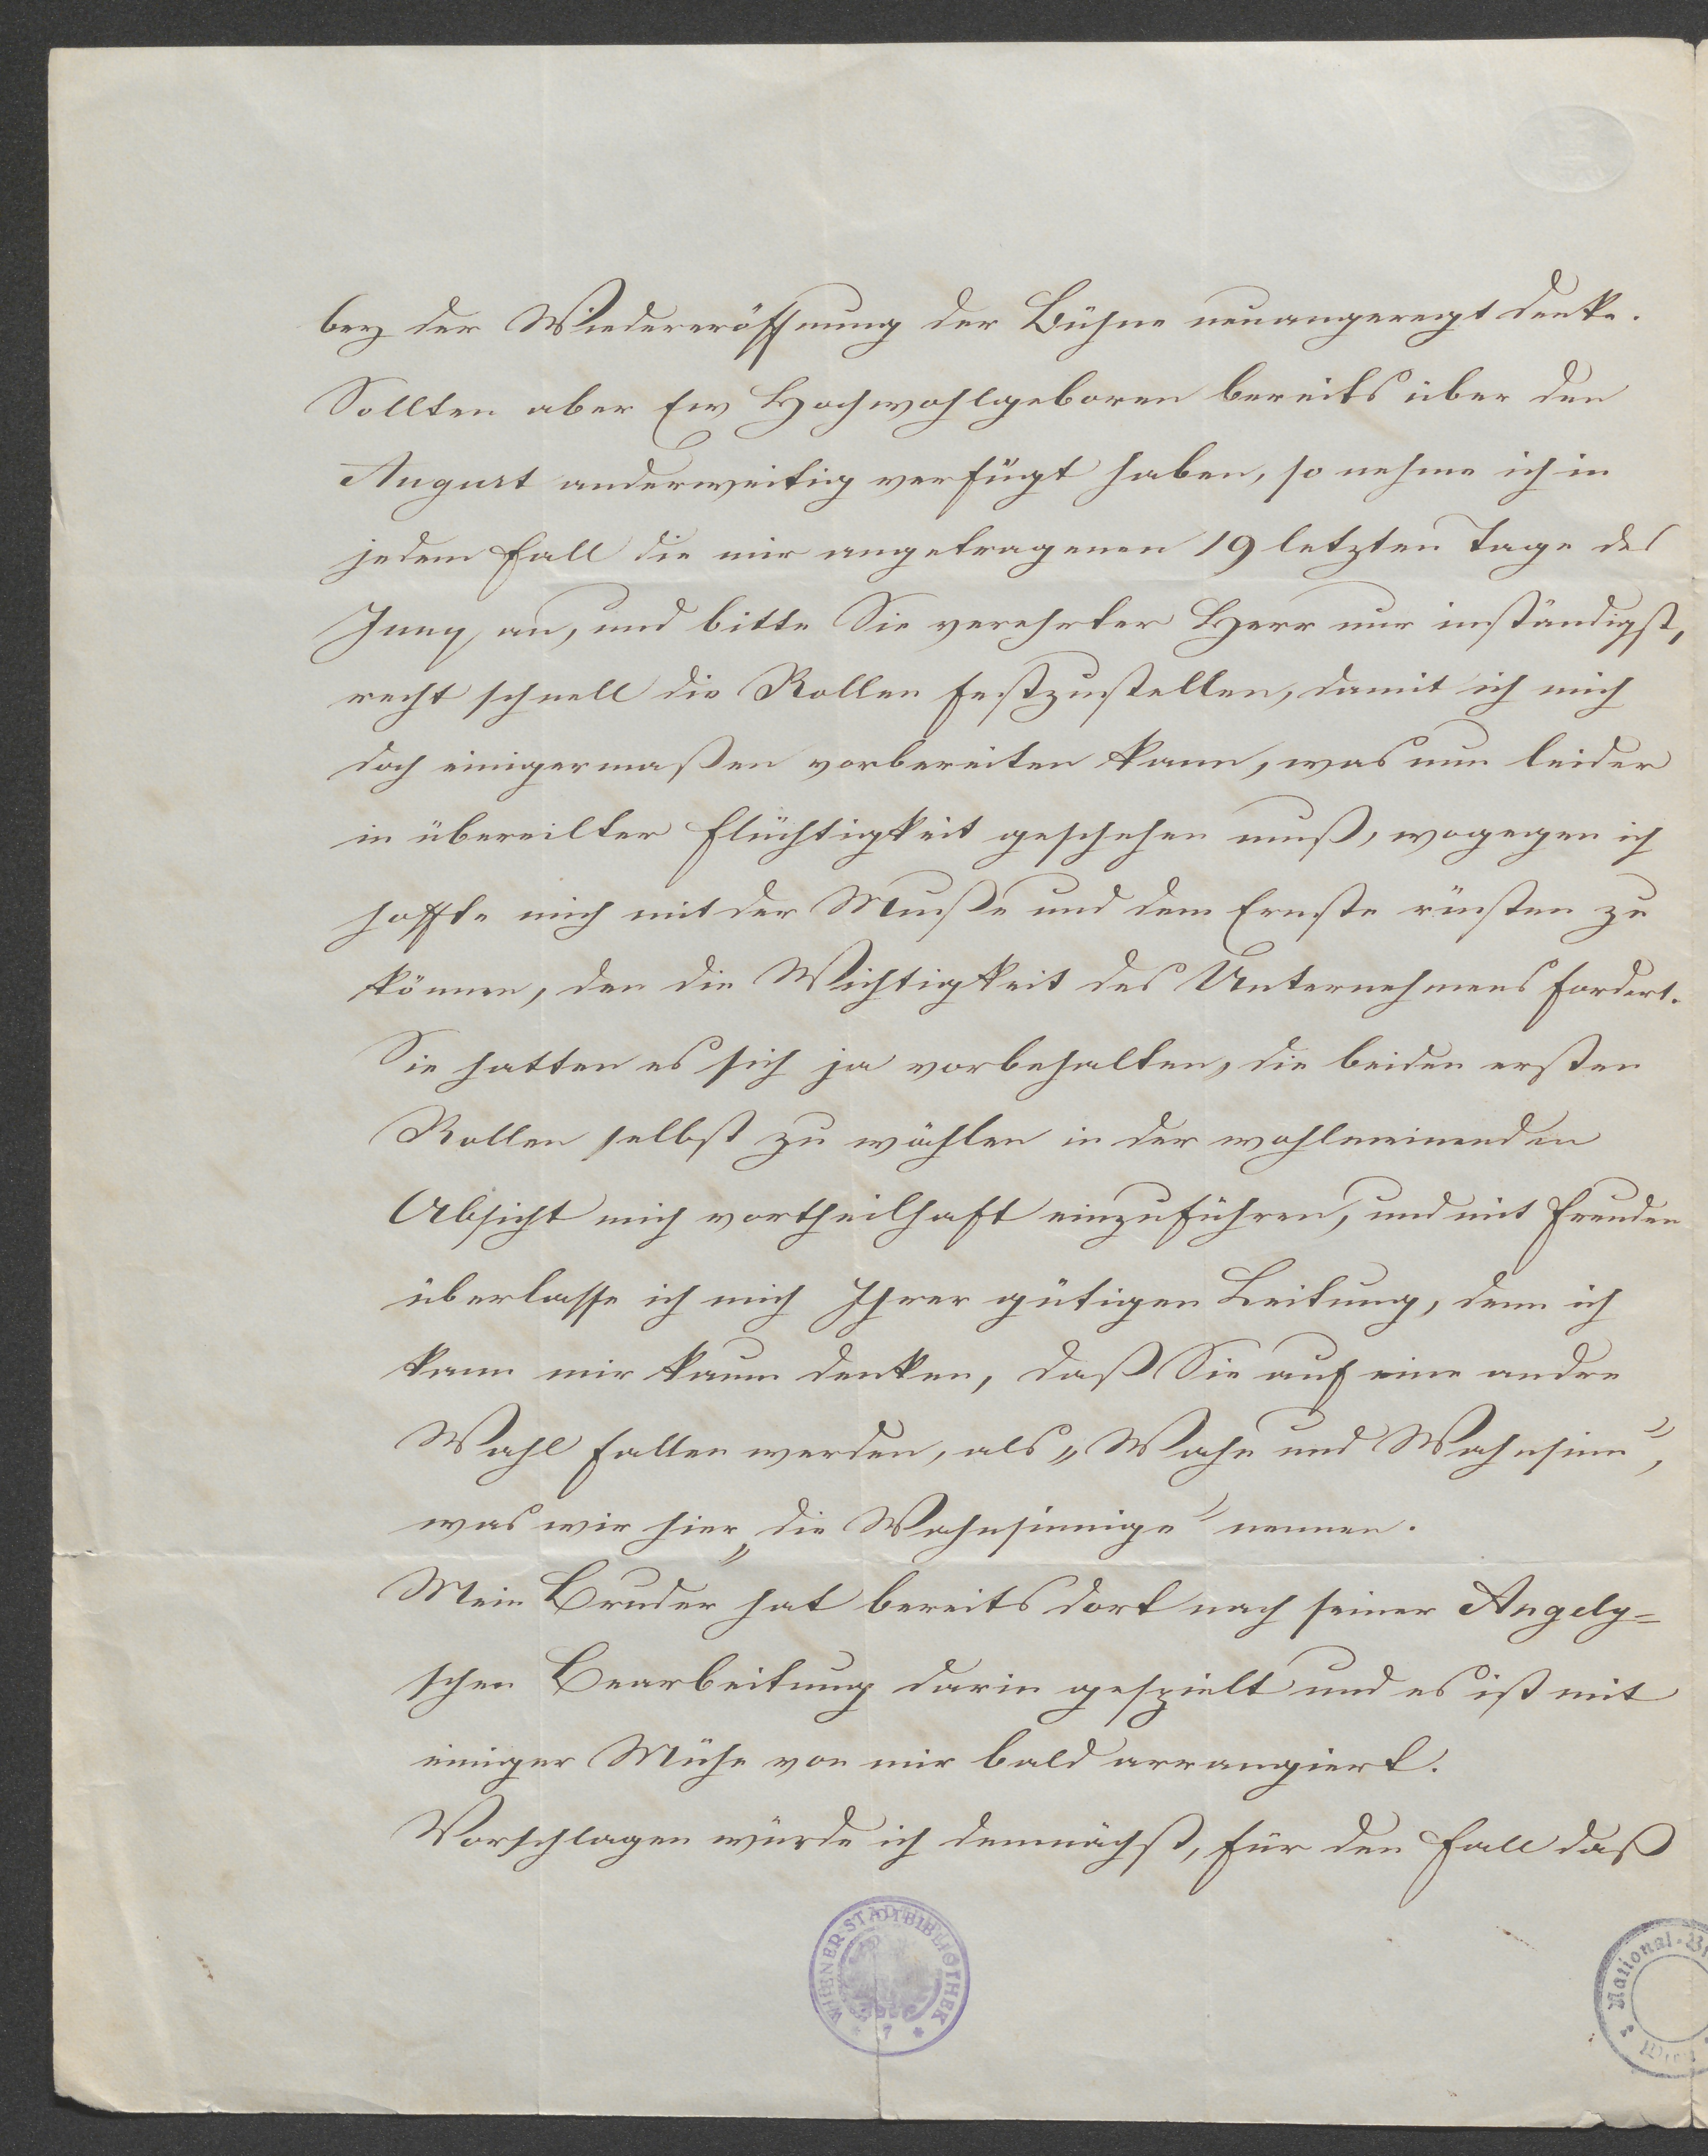 bey der Wiedereröffnung der Bühne neuangeregt denke.
Sollten aber Ew Hochwohlgeboren bereits über den
August anderweitig verfügt haben, so nehme ich in
jedem Fall die mir angetragenen 19 letzten Tage des
Juny an, und bitte Sie verehrter Herr nur inständigst,
recht schnell die Rollen festzustellen, damit ich mich
doch einigermaßen vorbereiten kann, was nun leider
in übereilter Flüchtigkeit geschehen muß, wogegen ich
hoffte mich mit der Muße und dem Ernste rüsten zu
können, den die Wichtigkeit des Unternehmens fordert.
Sie hatten es sich ja vorbehalten, die beiden ersten
Rollen selbst zu wählen in der wohlmeinenden
Absicht mich vortheilhaft einzuführen, und mit Freuden
überlasse ich mich Ihrer gütigen Leitung, denn ich
kann mir kaum denken, daß Sie auf eine andre
Wahl fallen werden, als „Wahn und Wahnsinn",
was wir hier „die Wahnsinnige" nennen.
Mein Bruder hat bereits dort nach seiner Angely=
schen Bearbeitung darin gespielt und es ist mit
einiger Mühe von mir bald arrangiert.
Vorschlagen würde ich demnächst, für den Fall daß
WIENER STADTBIBLIOTHEK
* 7 *
National-Bi
Wien